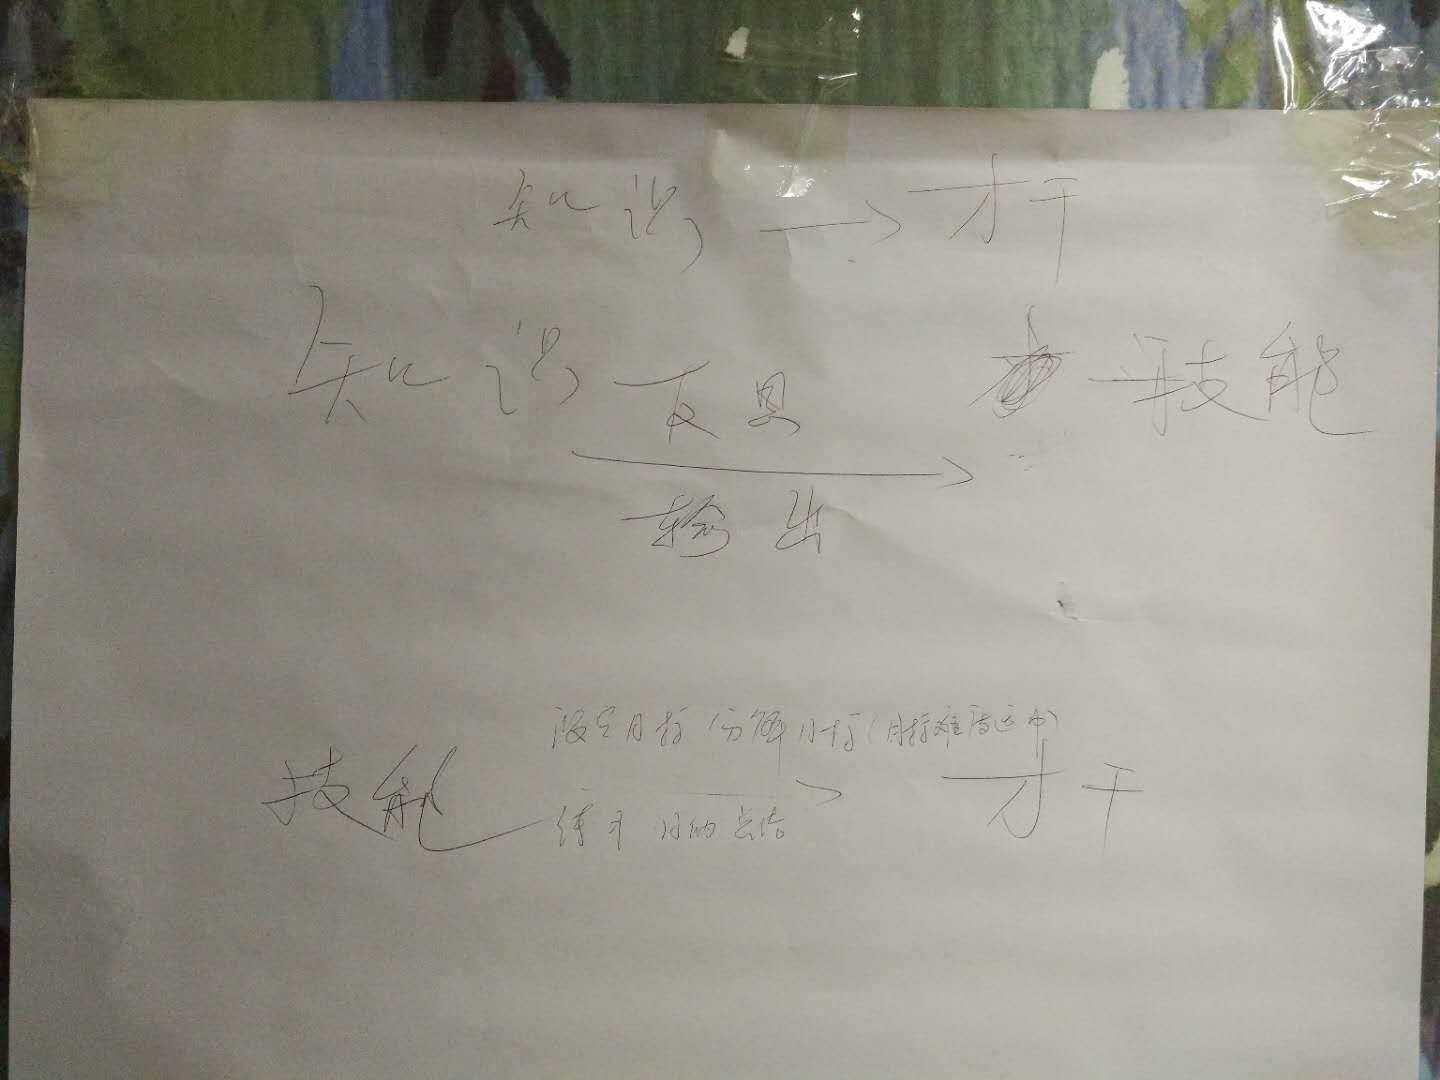 知识 → 才干
知识 反思 → 技能
输出
设定目标 分解目标(目标难度适中)
技能 → 才干
练习 归纳总结